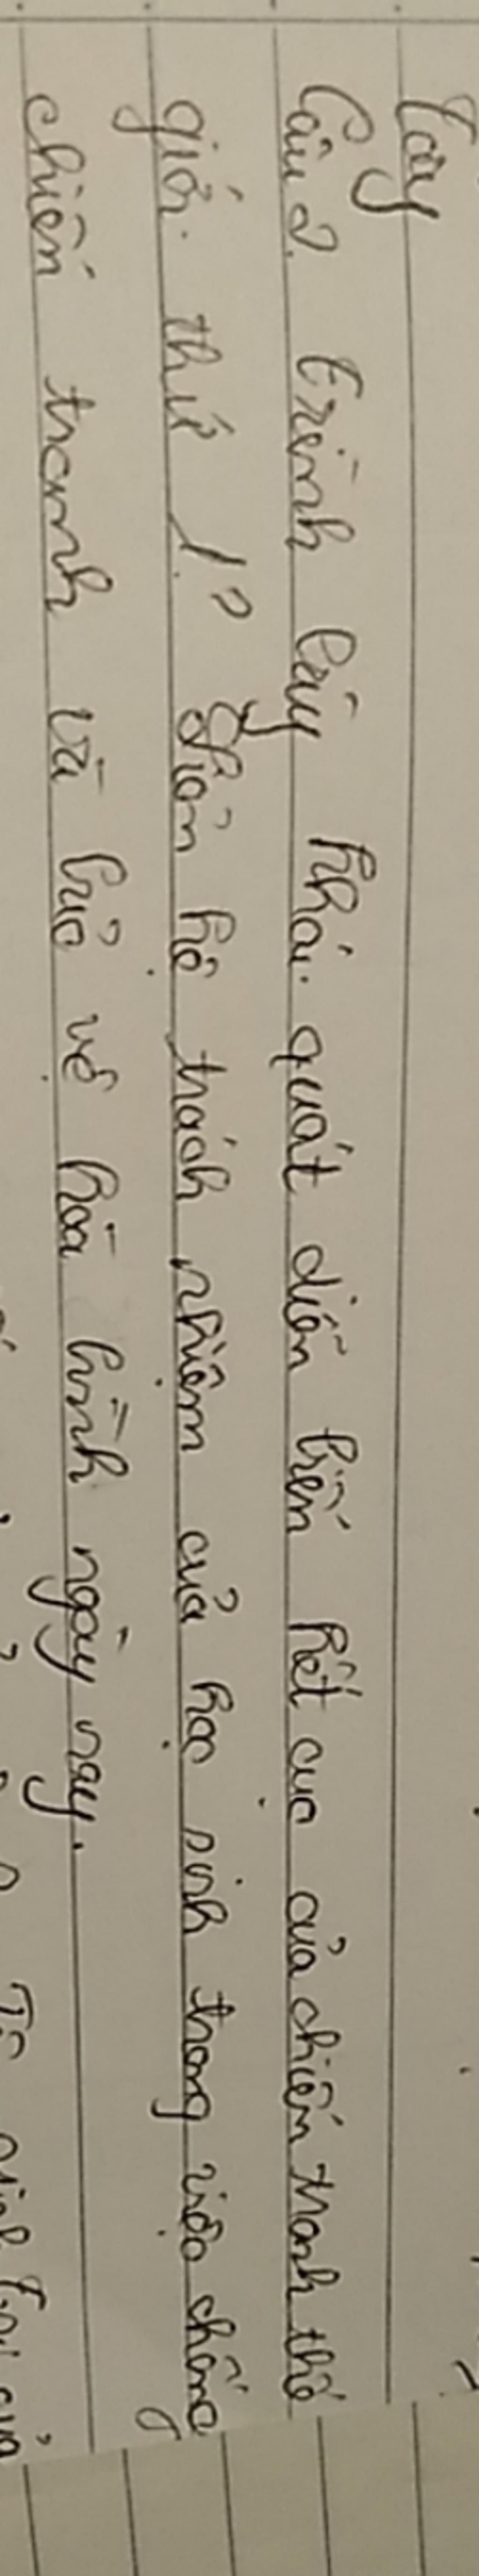 Tây
Câu 2. trình bày khái quát diễn biến kết cục của chiến tranh thế
giới thứ 1? liên hệ trách nhiệm của học sinh trong việc chống
chiến tranh và bảo vệ hòa bình ngày nay.